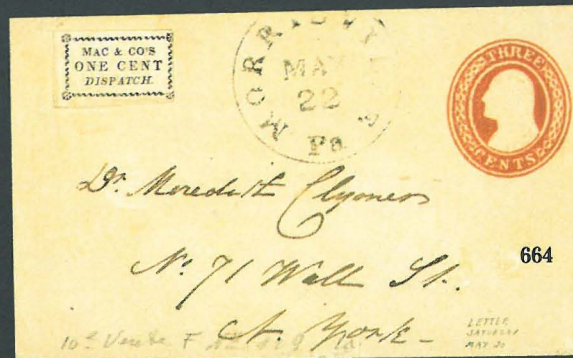 MAC & CO'S
ONE CENT
DISPATCH.
MORRISVILLE
MAY
22
Pa
THREE
CENTS
Dr. Meredith Clymer
No. 71 Wall St.
N. York
664
LETTER
SATURDAY
MAY 20